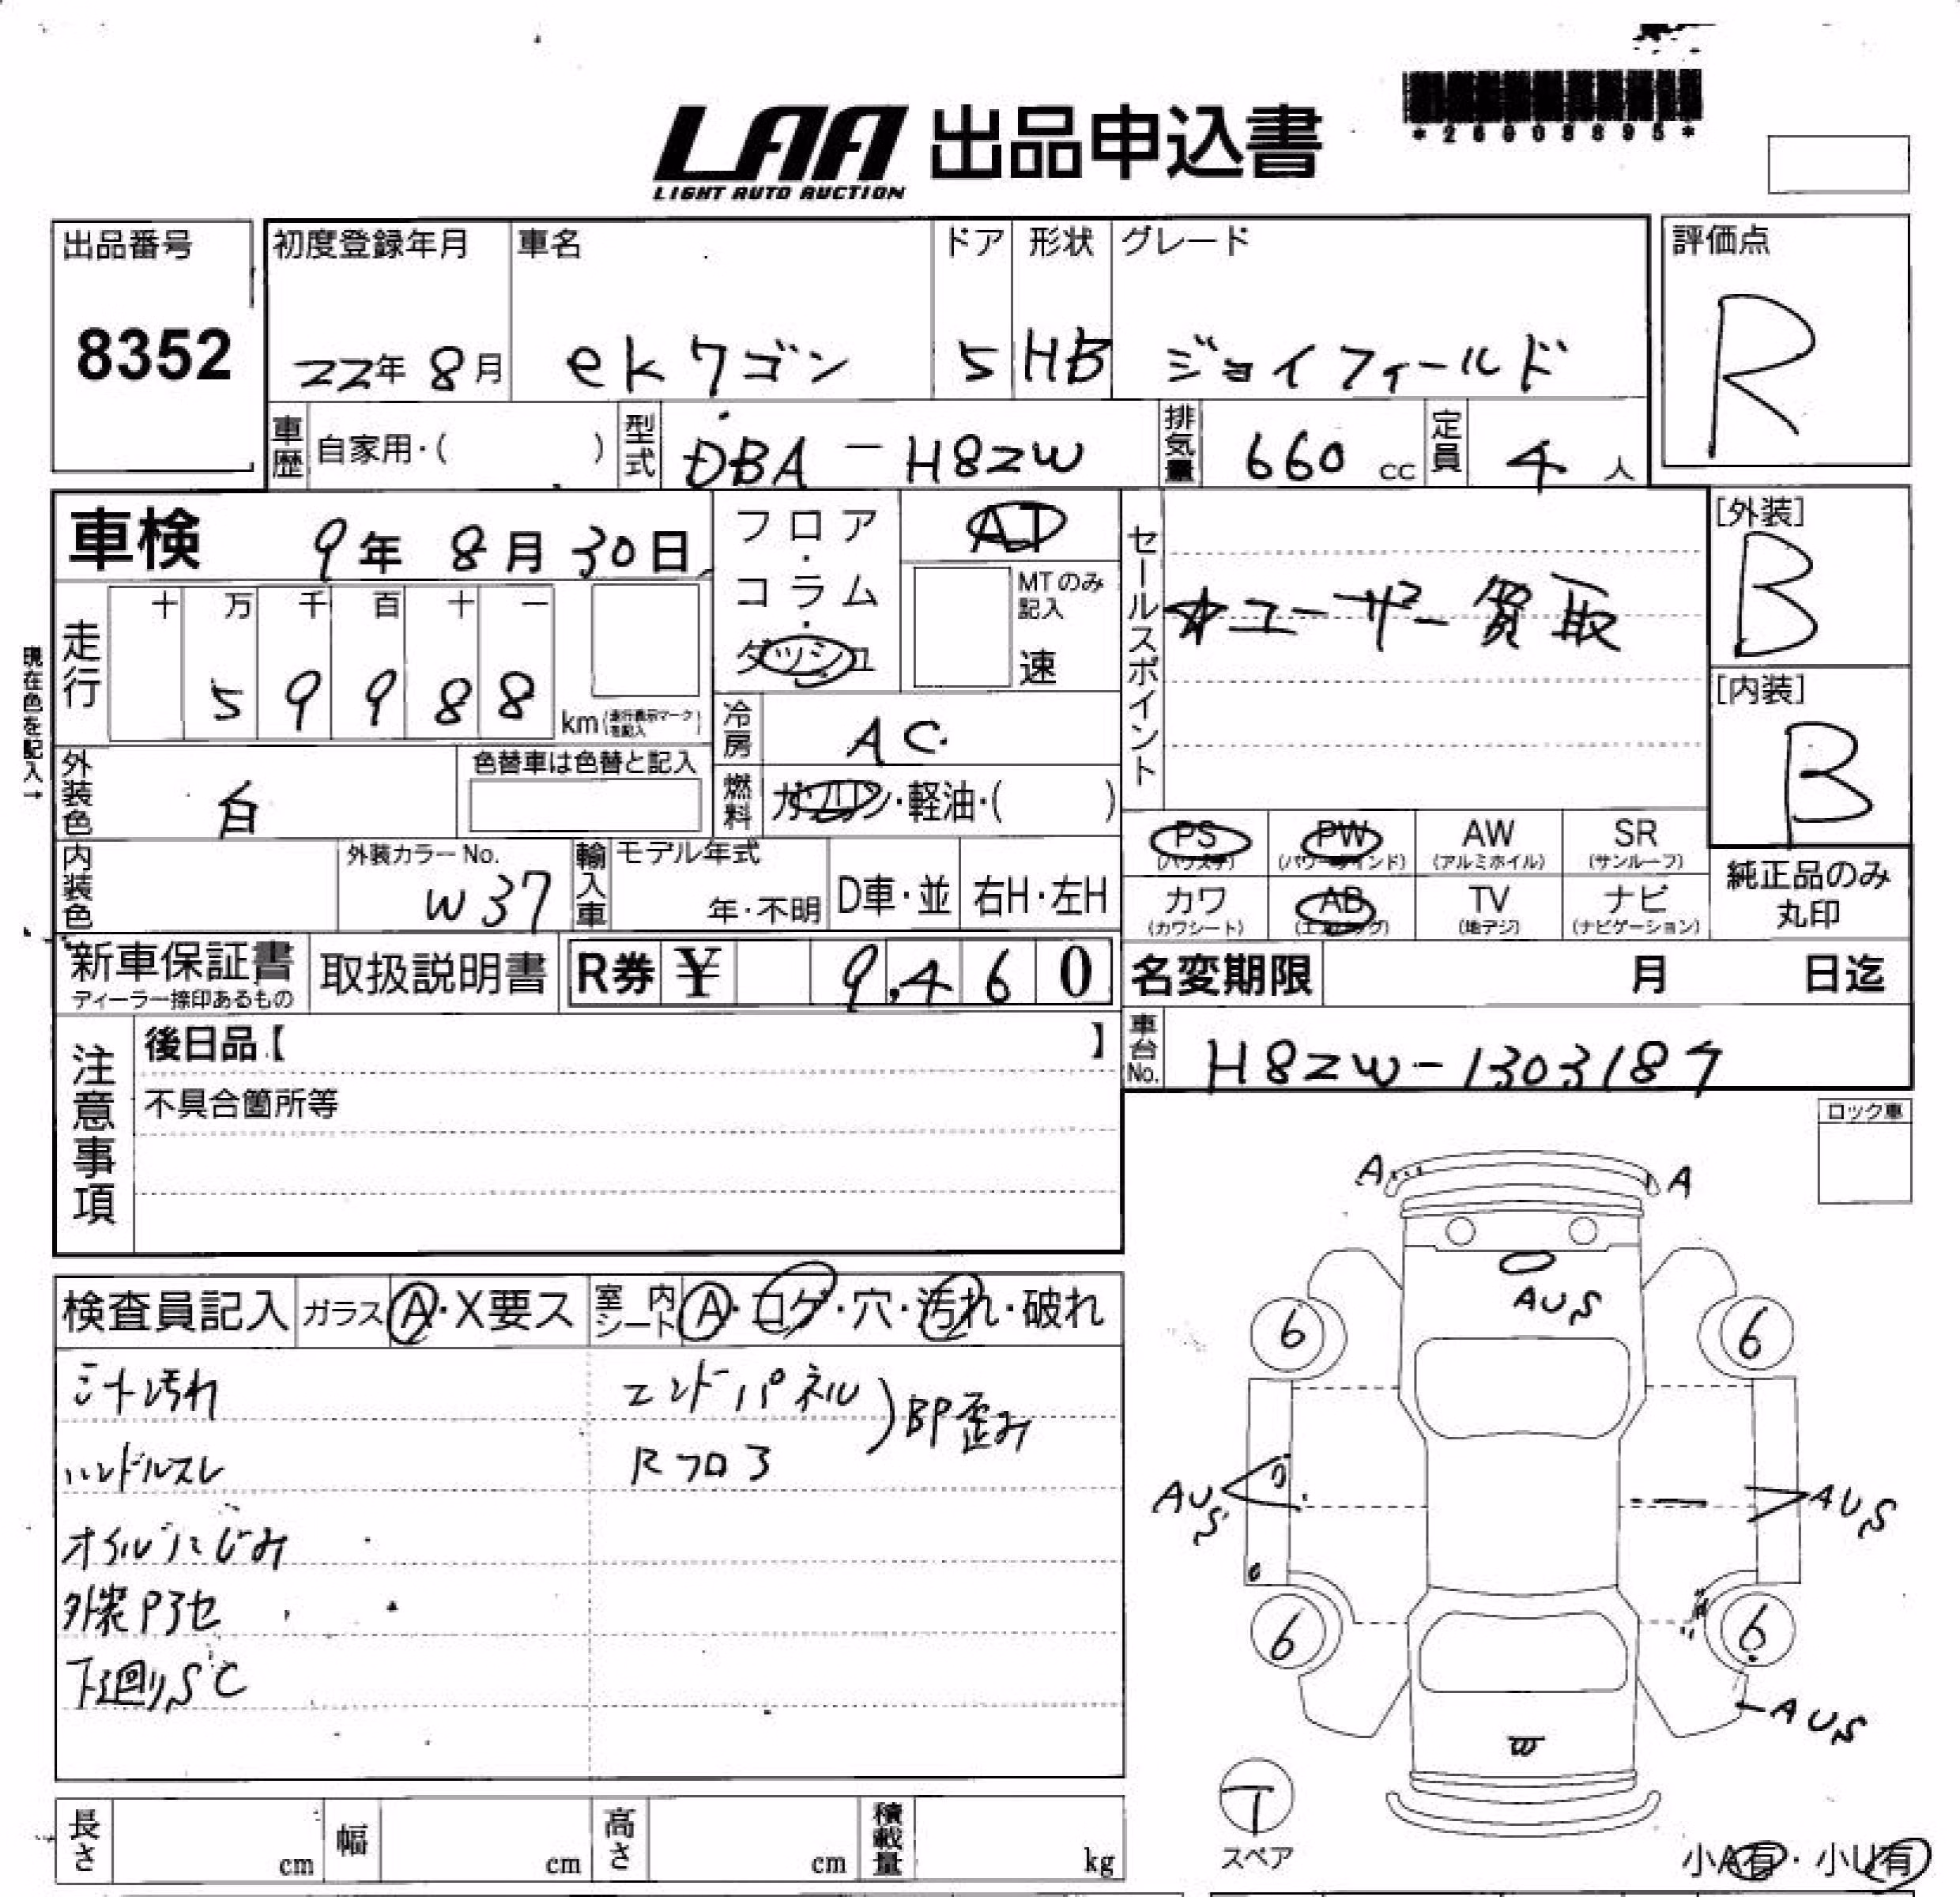 LAA 出品申込書
LIGHT AUTO AUCTION
*26908895*
出品番号
8352
初度登録年月
22年 8月
車名
ek ワゴン
ドア
5
形状
HB
グレード
ジョイフィールド
評価点
R
車歴 自家用・( )
型式 DBA - H82W
排気量 660 cc
定員 4 人
車検 9年 8月 30日
フロア・コラム・ダッシュ
AT
MTのみ記入
速
セールスポイント
★ユーザー買取
[外装]
B
[内装]
B
現在色を記入→
走行 十 万 千 百 十 一
5 9 9 8 8 km (走行表示マークを記入)
冷房 AC
外装色 白
色替車は色替と記入
燃料 ガソリン・軽油・( )
PS (パワステ)
PW (パワーウインド)
AW (アルミホイル)
SR (サンルーフ)
カワ (カワシート)
AB (エアバッグ)
TV (地デジ)
ナビ (ナビゲーション)
純正品のみ丸印
内装色
外装カラーNo.
W37
輸入車 モデル年式
年・不明
D車・並
右H・左H
新車保証書
ディーラー捺印あるもの
取扱説明書
R券 ¥ 9,460
名変期限 月 日迄
車台No. H82W-1303187
注意事項
後日品【 】
不具合箇所等
ロック車
検査員記入
ガラス A・X要ス
室内シート A・コゲ・穴・汚れ・破れ
シート汚れ
ハンドルスレ
オイルにじみ
外装Pアセ
下廻りSC
エンドパネル
Rフロア
BP歪み
A
A
AUS
6
6
AUS
AUS
6
6
AUS
T
スペア
小A有・小U有
長さ cm
幅 cm
高さ cm
積載量 kg